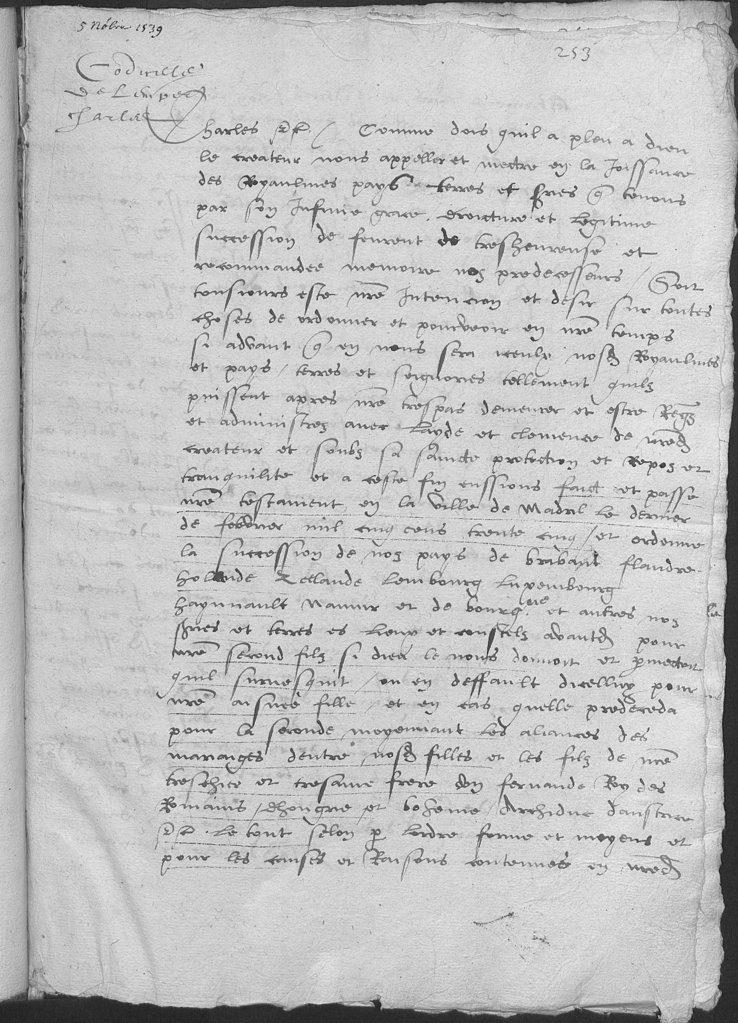 5 Nobre 1539
253
Codicille
de Lempeor
Charles
Charles &c. / Comme dois quil a pleu a dieu
le createur nous appeller et mectre en la Joissance
des Royaulmes pays terres et sries q tenons
par son Infinie grace, droicture et legitime
succession de feurent de tresheureuse et
recommandee memoire noz predecesseurs / Soit
tousiours este nre Intencion et desir sur toutes
choses de ordonner et pourveoir en nre temps
si advant q en nous sera nosd Royaulmes
et pays, terres et seignories tellement quilz
puissent apres nre trespas demeurer et estre Regiz
et administrez avec layde et clemence de nred
createur et soubz sa saincte protection et repoz et
tranquilite et a ceste fin eussions faict et passe
nre testament en la ville de Madril le dernier
de febvrier mil cinq cens trente cinq / et ordonne
la succession de noz pays de brabant flandre
hollande zeelande lembourg luxembourg
haynnault namur et de bourgne et autres noz
sries et terres es lieux et coustelz advantd pour
nre second filz si dieu le nous donnoit et pmectoit
quil survesquit / ou en deffault dicelluy pour
nre aisnee fille, et en cas quelle predeceda
pour la seconde moyennant les aliances des
mariaiges dentre nosd filles et les filz de nre
treschier et tresame frere don fernande Roy des
Romains, dhongrie, et boheme Archiduc daustrice
&c. Le tout selon p lordre forme et moyens et
pour les causes et Raisons contenues en nred